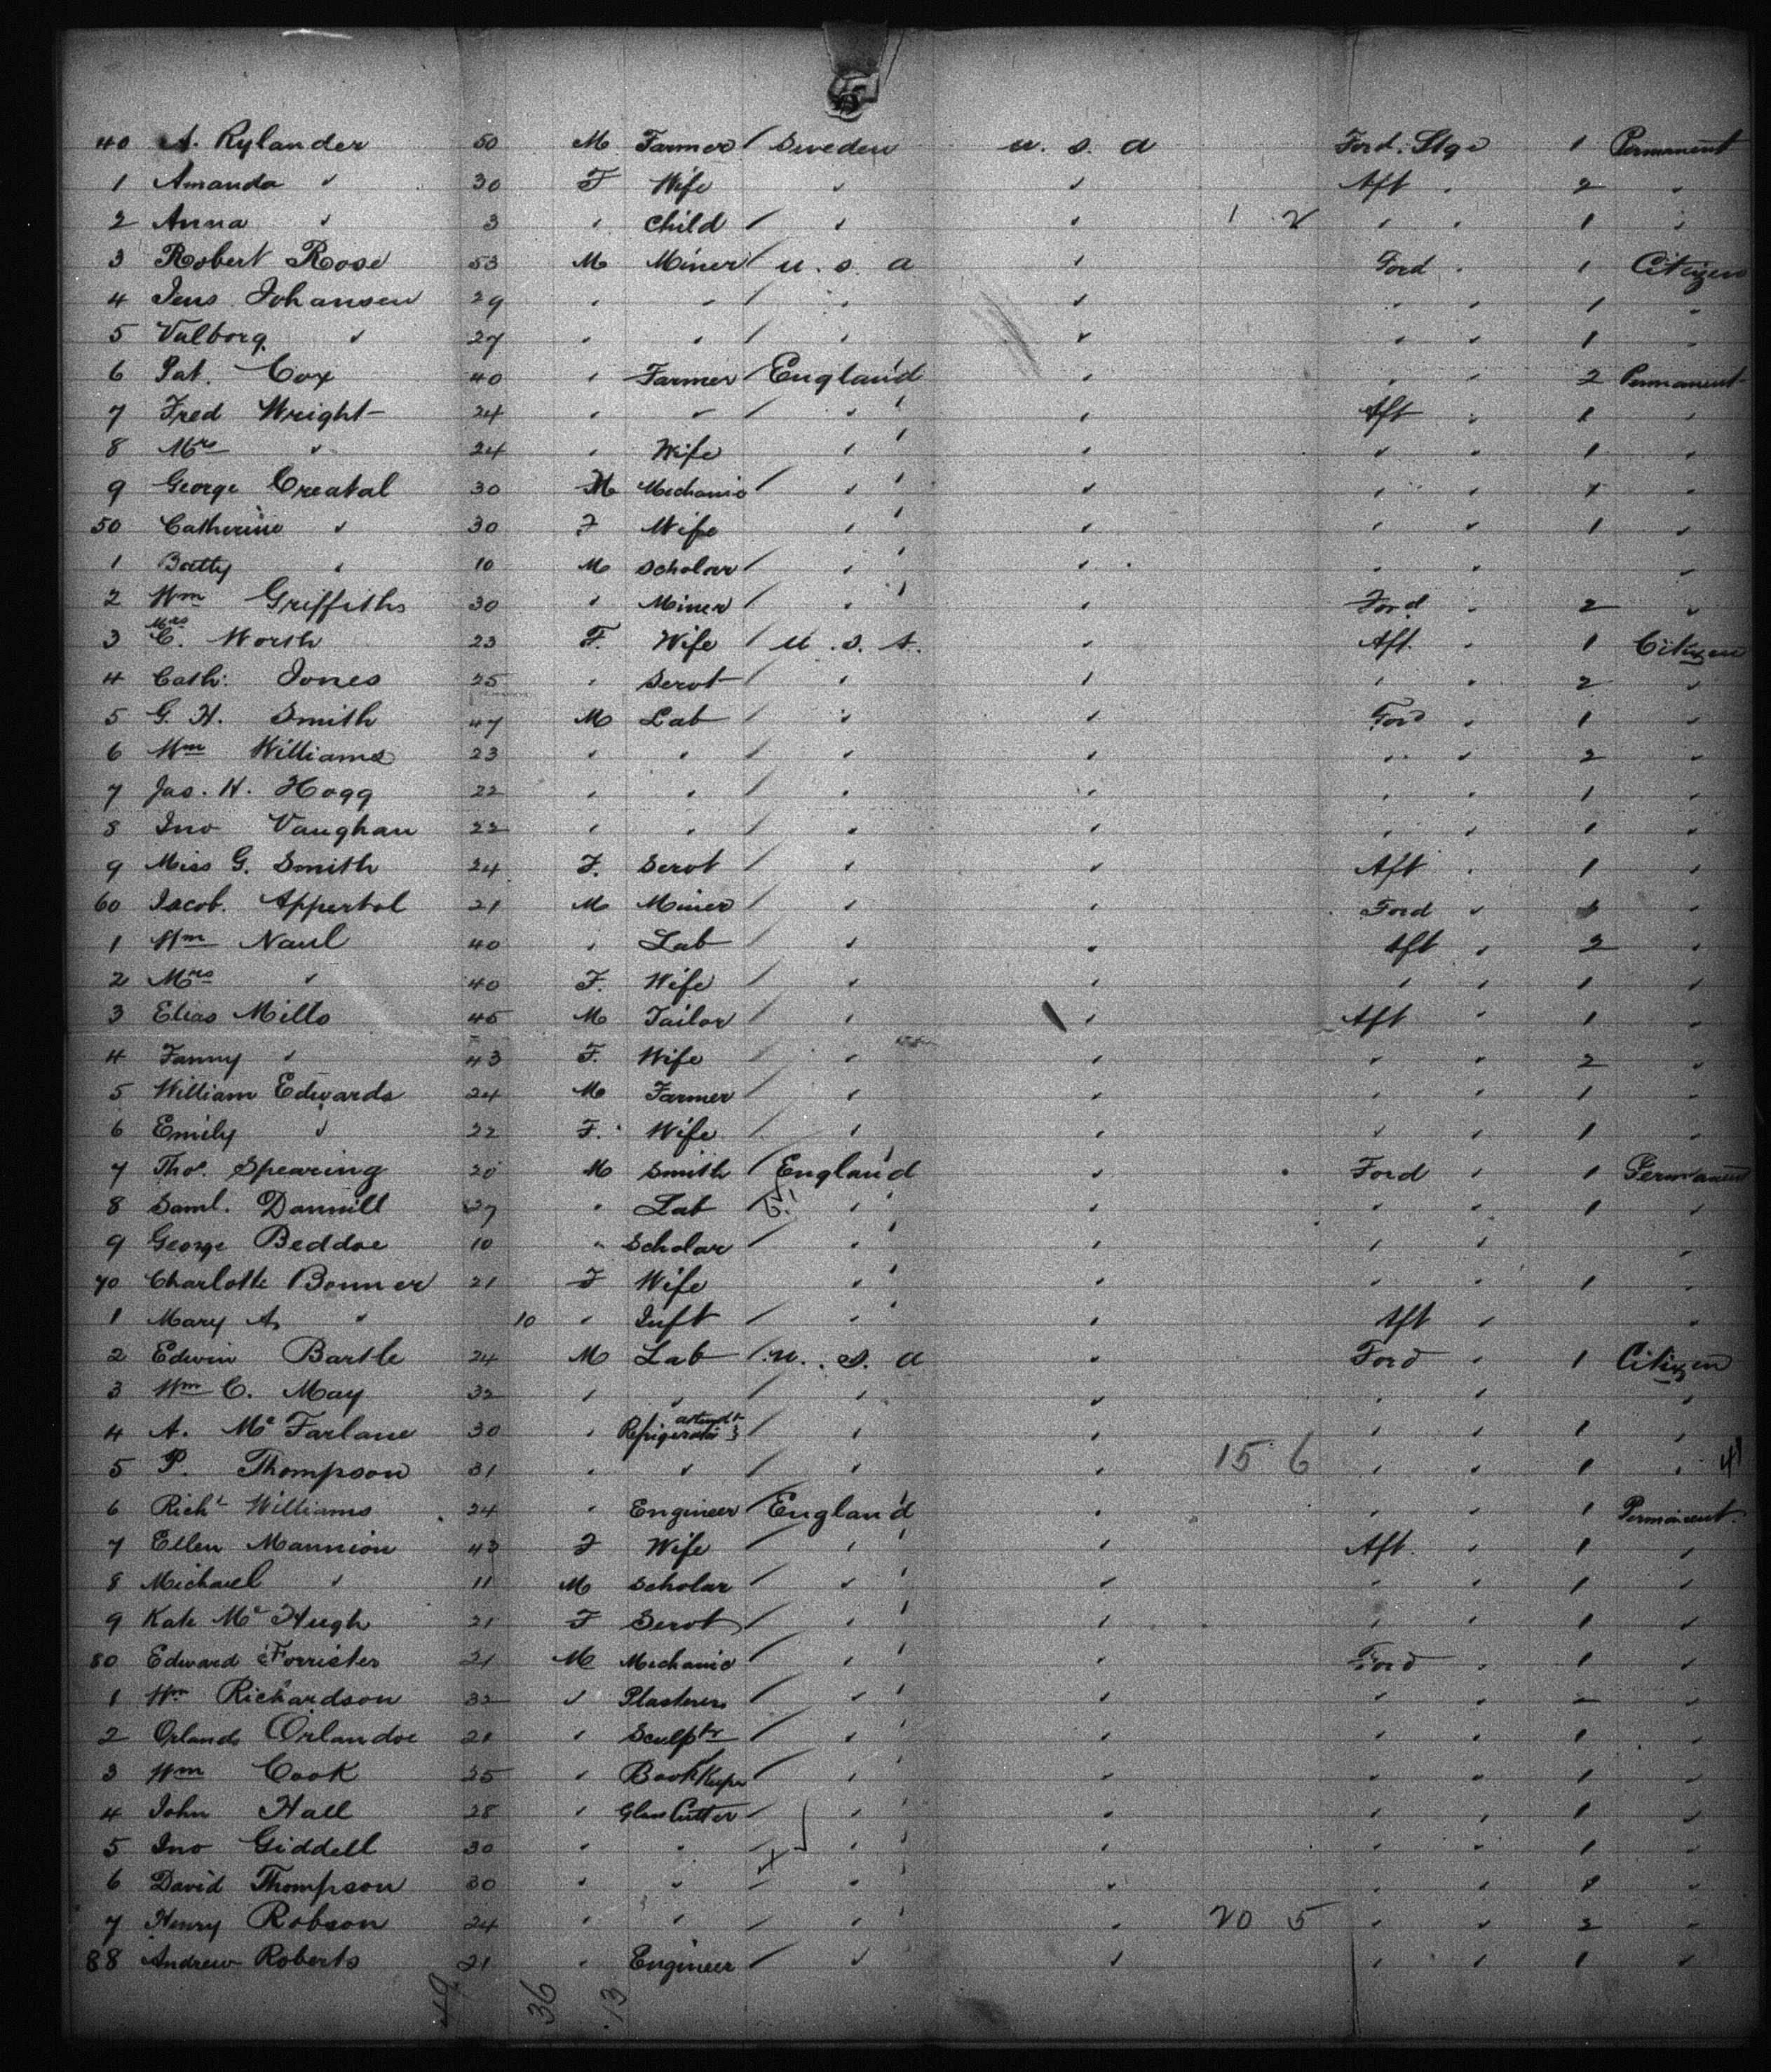 40 A. Rylander 50 M Farmer / Sweden u. s. a Ford. Stge 1 Permanent
1 Amanda " 30 F Wife " " Aft " 2 "
2 Anna " 3 " Child / " " 1 2 " " 1 "
3 Robert Rose 53 M Miner / u. s. a " Ford " 1 Citizen
4 Jens Johansen 29 " " / " " " " 1 "
5 Valborg " 27 " " / " " " " 1 "
6 Pat. Cox 40 " Farmer / England " " " 2 Permanent
7 Fred Wright 24 " " / " " Aft " 1 "
8 Mrs " 24 " Wife " " " " 1 "
9 George Creatal 30 M Mechanic / " " " " 1 "
50 Catherine " 30 F Wife " " " " 1 "
1 Batty " 10 M Scholar / " " " " "
2 Wm Griffiths 30 " Miner / " " Ford " 2 "
3 Mrs C. Worth 23 F. Wife / u. s. a. " Aft. " 1 Citizen
4 Cath. Jones 25 " Servt / " " " " 2 "
5 G. H. Smith 47 M Lab / " " Ford " 1 "
6 Wm Williams 23 " " / " " " " 2 "
7 Jas. H. Hogg 22 " " / " " " " 1 "
8 Jno Vaughan 22 " " / " " " " 1 "
9 Miss G. Smith 24 F. Servt / " " Aft " 1 "
60 Jacob. Appertol 21 M Miner / " " Ford " "
1 Wm Naul 40 " Lab / " " Aft " 2 "
2 Mrs " 40 F. Wife / " " " " 1 "
3 Elias Mills 45 M Tailor / " " Aft " 1 "
4 Fanny " 43 F. Wife / " " " " 2 "
5 William Edwards 24 M Farmer / " " " " 1 "
6 Emily " 22 F. Wife / " " " " 1 "
7 Thos. Spearing 20 M Smith / England " Ford " 1 Permanent
8 Saml. Dannill 27 " Lab / " " " " 1 "
9 George Beddoe 10 " Scholar / " " " " "
70 Charlotte Bonner 21 F Wife " " " " 1 "
1 Mary A. " 10 " Inft / " " Aft " "
2 Edwin Bartle 24 M Lab / u. s. a " Ford " 1 Citizen
3 Wm C. May 32 " " / " " " " "
4 A. McFarlane 30 " Refrigerator attendt } / " " " " 1 "
5 P. Thompson 31 " " / " " 15 6 " " 1 " 41
6 Richt Williams 24 " Engineer / England " " " 1 Permanent.
7 Ellen Mannion 43 F Wife " " Aft. " 1 "
8 Michael " 11 M Scholar / " " " " 1 "
9 Kate McHugh 21 F Servt / " " " " 1 "
80 Edward Forrister 21 M Mechanic / " " Ford " 1 "
1 Wm Richardson 32 " Plasterer / " " " " 2 "
2 Orlando Orlandoe 21 " Sculptr / " " " " 1 "
3 Wm Cook 25 " BookKeepr / " " " " 1 "
4 John Hall 28 " Glass Cutter / " " " " 1 "
5 Jno Giddell 30 " " / " " " " 1 "
6 David Thompson 30 " " / " " " " 1 "
7 Henry Robson 24 " " / " " 20 5 " " 2 "
88 Andrew Roberts 21 " Engineer / " " " " 1 "
49 36 13